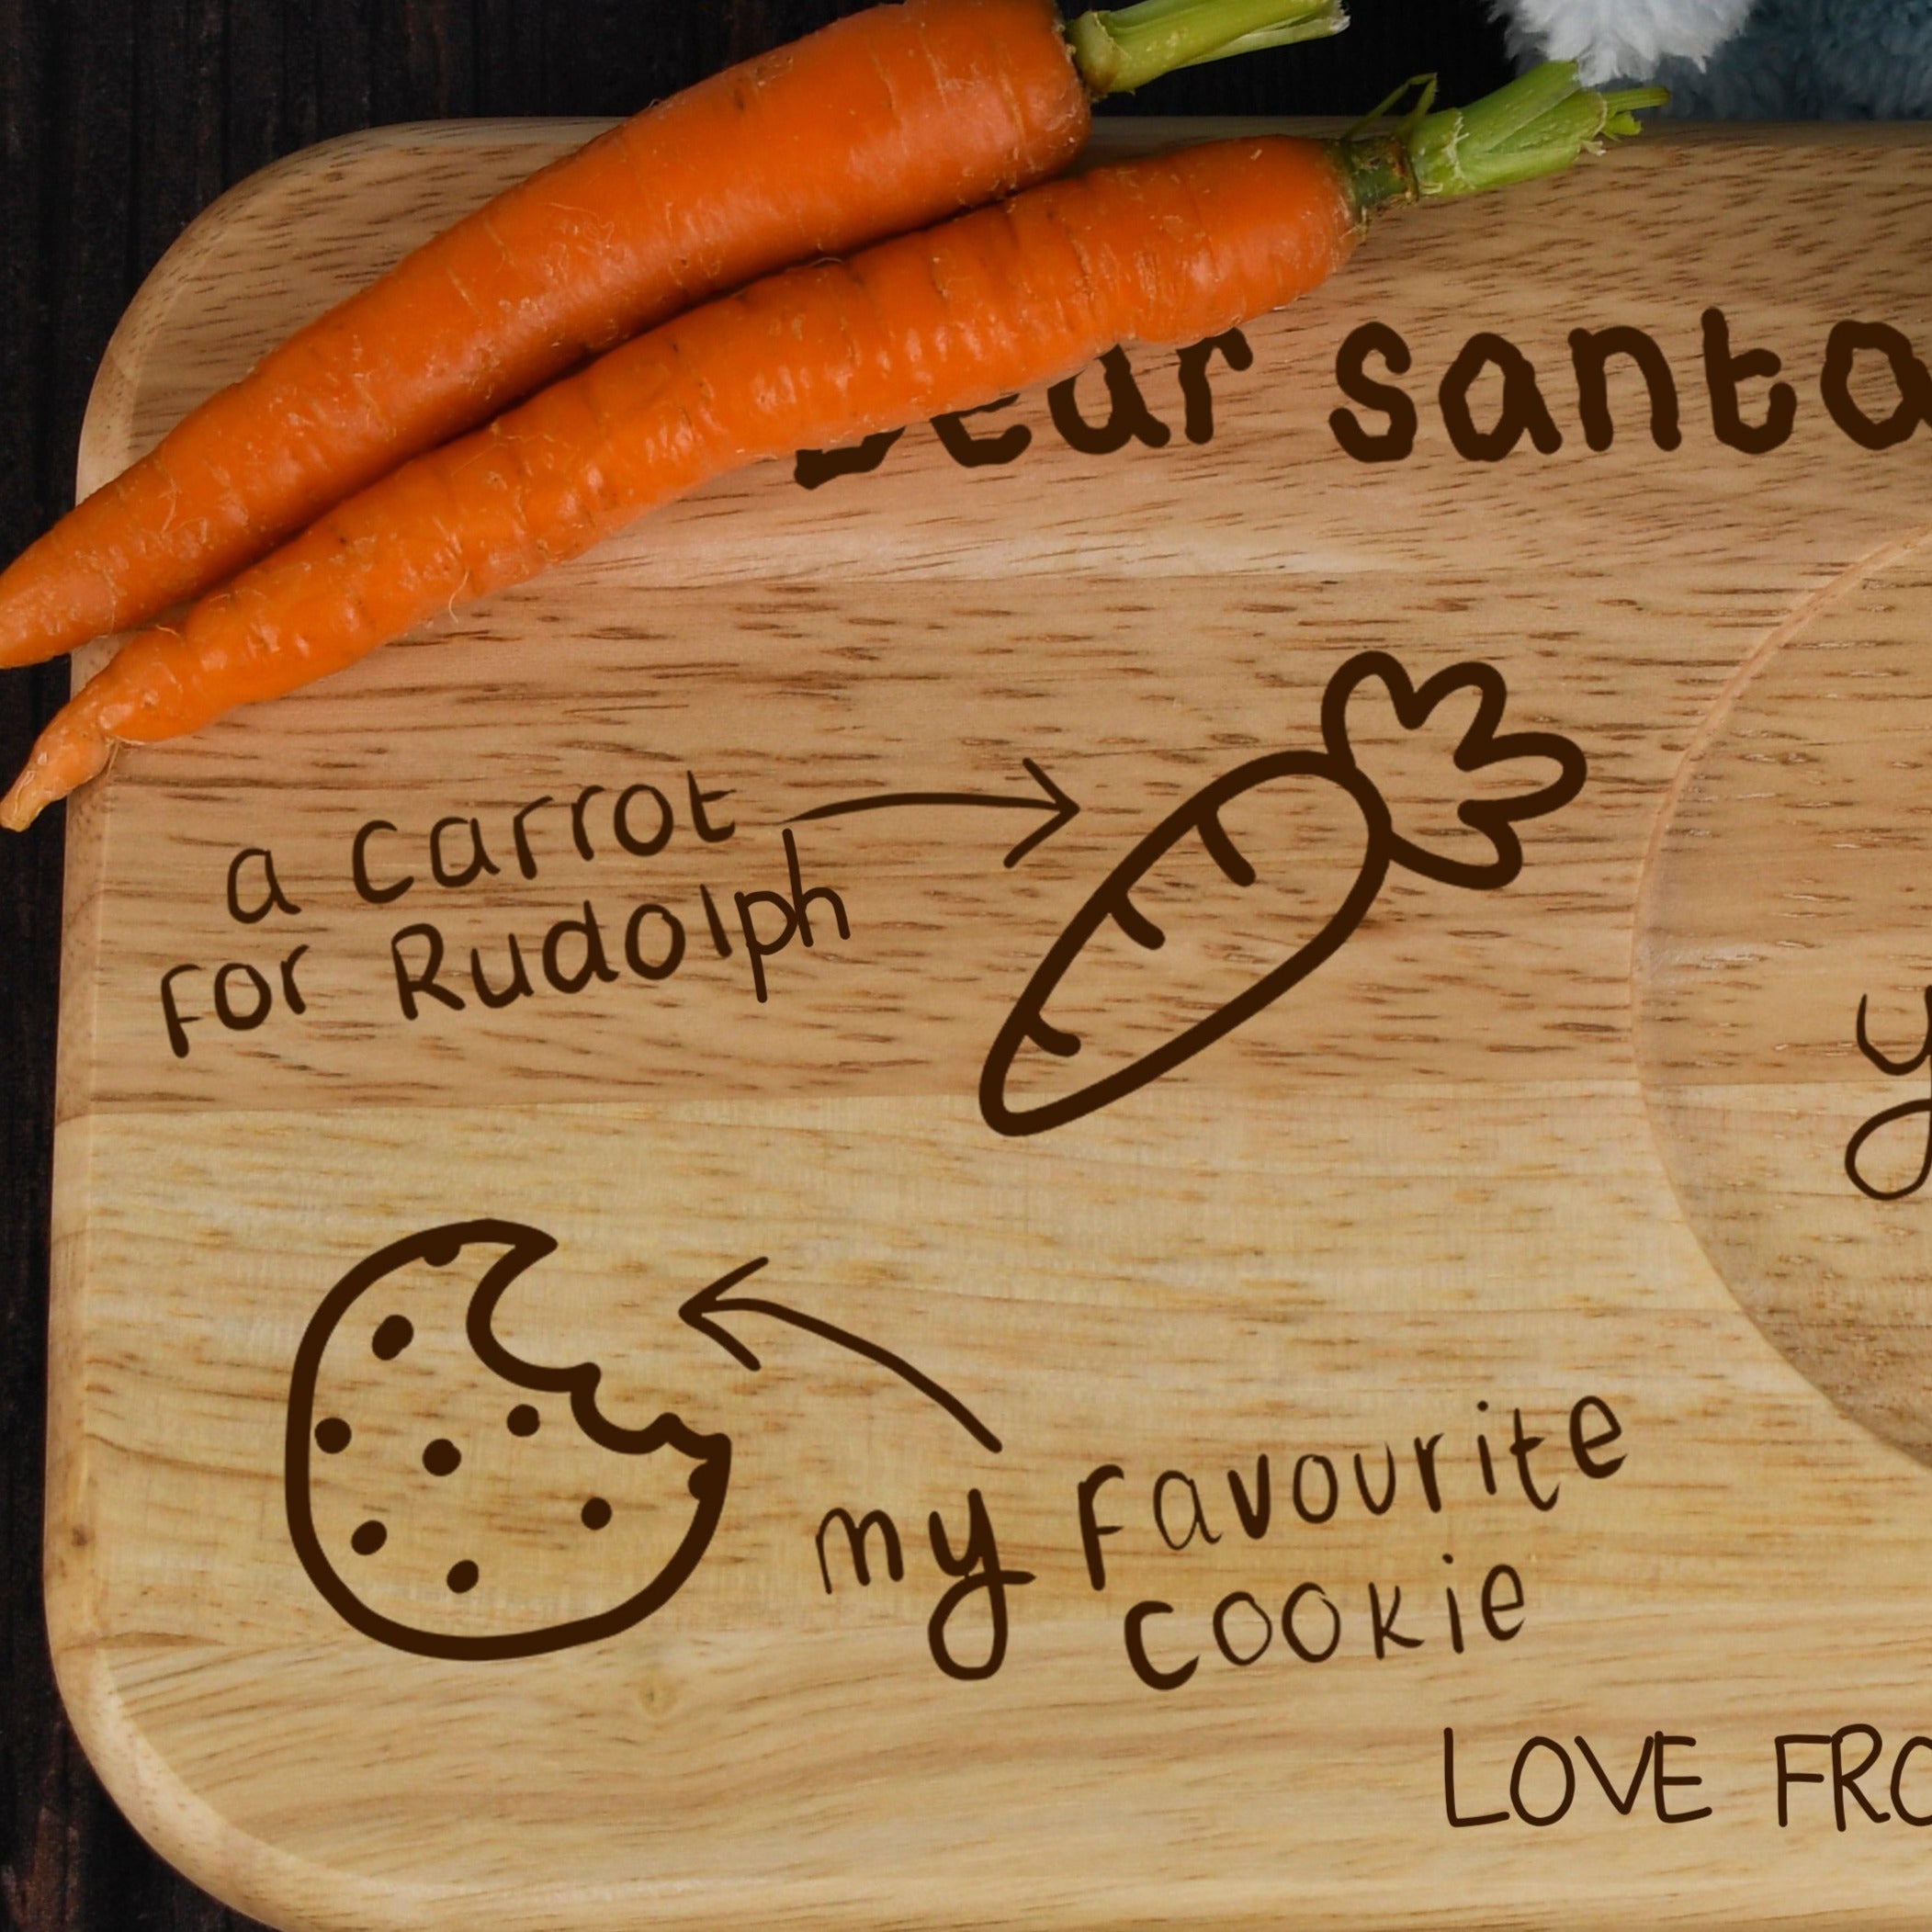 Dear santa
a carrot
for Rudolph
my favourite
cookie
LOVE